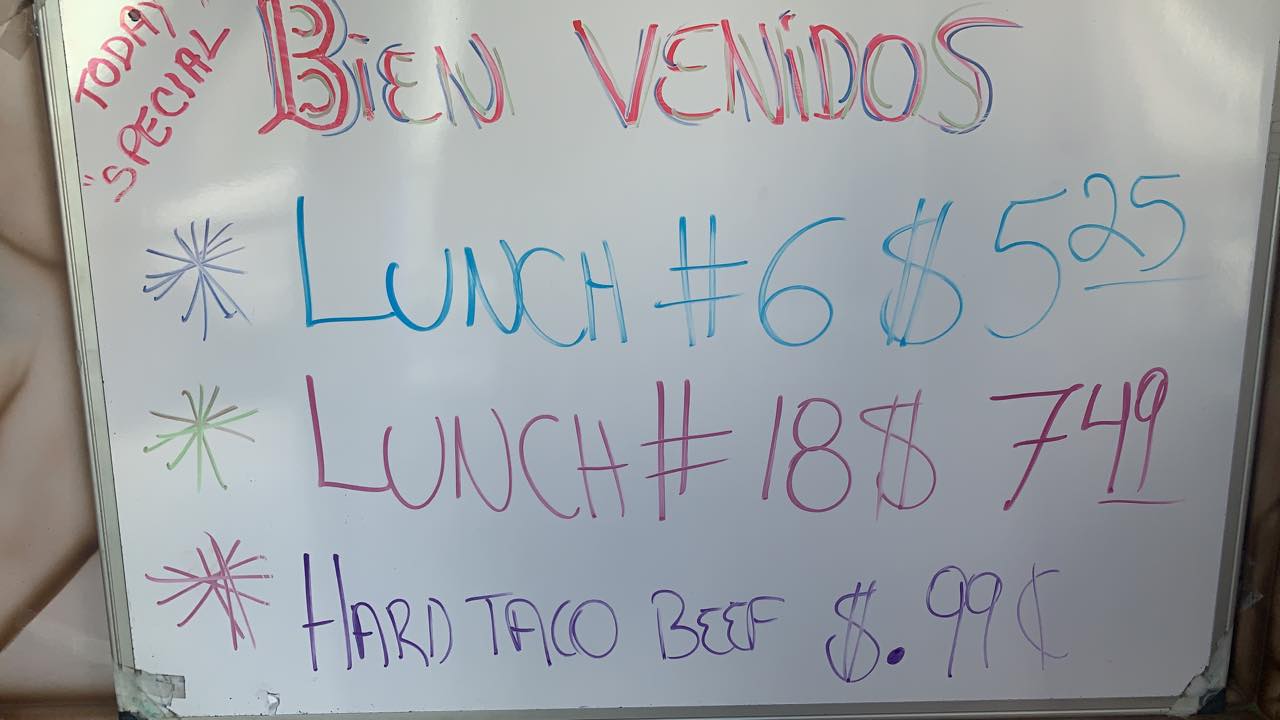 TODAY
"SPECIAL"
BiEN VENiDOS
LUNCH #6 $5 25
LUNCH # 18 $ 7 49
HARD TACO BEEF $.99¢